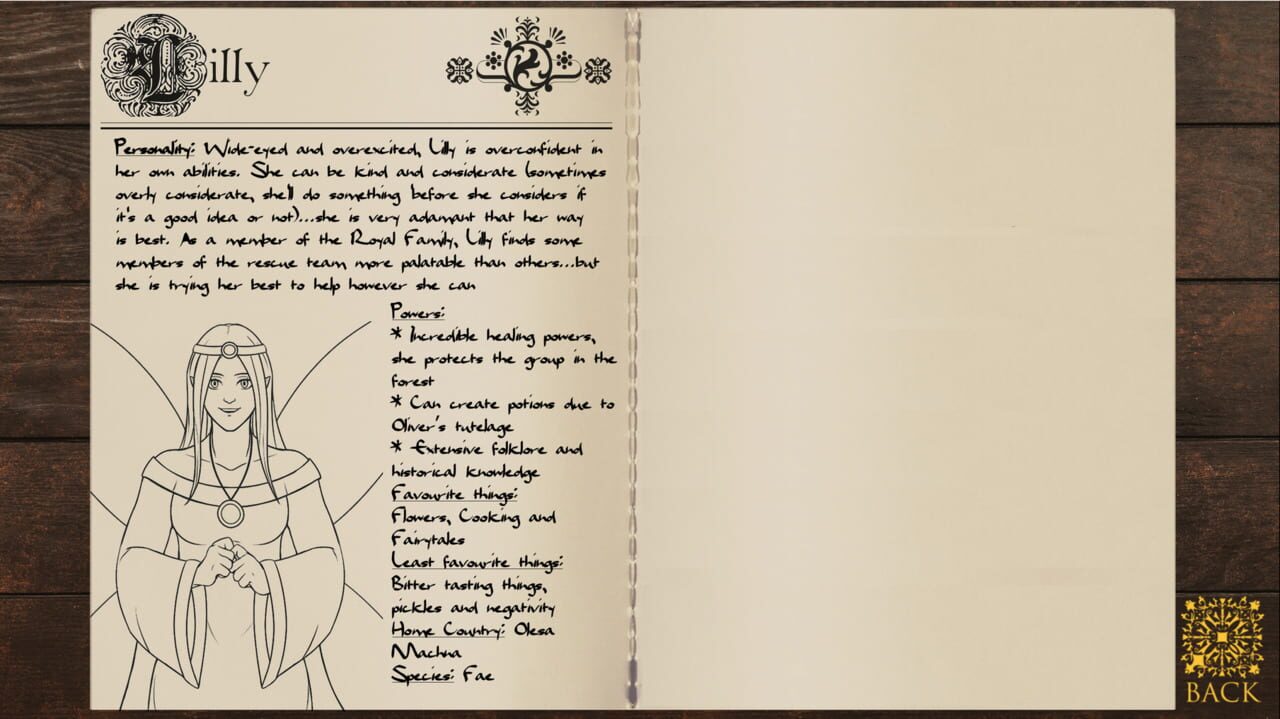 Lilly
Personality: Wide-eyed and overexcited, Lilly is overconfident in
her own abilities. She can be kind and considerate (sometimes
overly considerate, she'll do something before she considers if
it's a good idea or not)...she is very adamant that her way
is best. As a member of the Royal Family, Lilly finds some
members of the rescue team more palatable than others...but
she is trying her best to help however she can
Powers:
* Incredible healing powers,
she protects the group in the
forest
* Can create potions due to
Oliver's tutelage
* Extensive folklore and
historical knowledge
Favourite things:
Flowers, Cooking and
Fairytales
Least favourite things:
Bitter tasting things,
pickles and negativity
Home Country: Olesa
Machna
Species: Fae
BACK